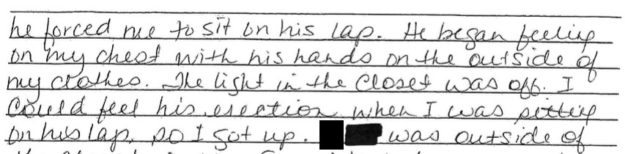 he forced me to sit on his lap. He began feeling
on my chest with his hands on the outside of
my clothes. The light in the closet was off. I
could feel his erection when I was sitting
on his lap, so I got up. was outside of